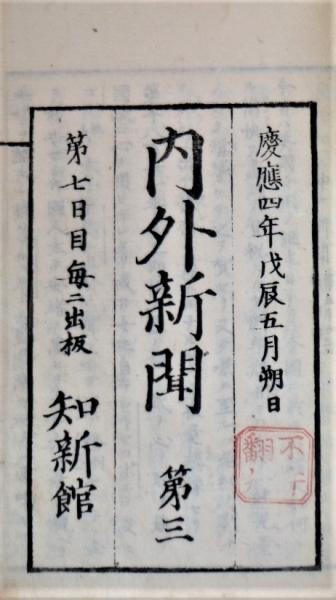 慶應四年戊辰五月朔日
不許
翻刻
内外新聞 第三
第七日目每ニ出板
知新館